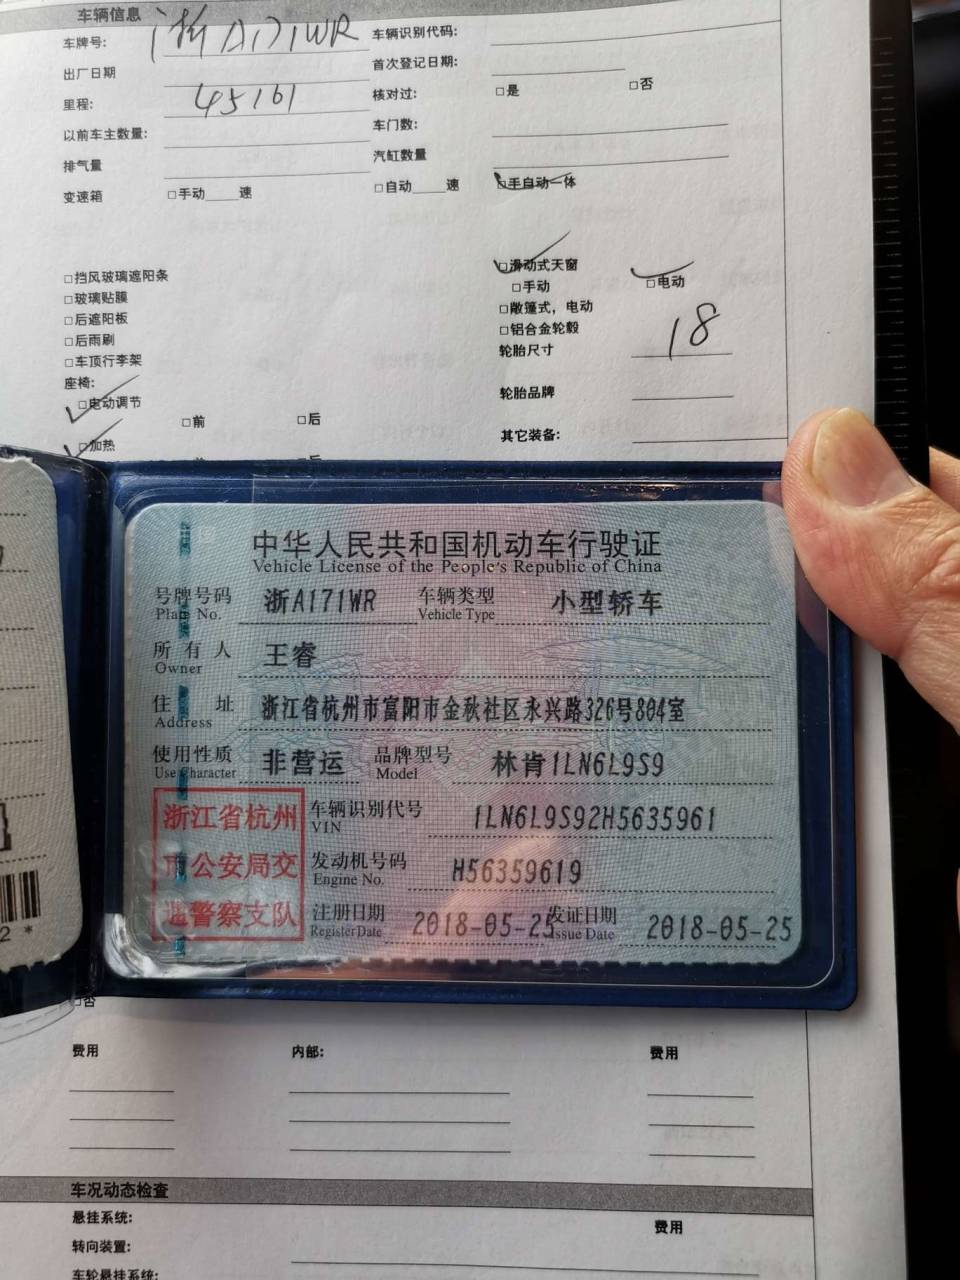 车辆信息
车牌号: 浙A171WR 车辆识别代码:
出厂日期 首次登记日期:
里程: 45161 核对过: □是 □否
以前车主数量: 车门数:
排气量 汽缸数量
变速箱 □手动____速 □自动____速 □手自动一体
□挡风玻璃遮阳条 □滑动式天窗
□玻璃贴膜 □手动 □电动
□后遮阳板 □敞篷式，电动
□后雨刷 □铝合金轮毂
□车顶行李架 轮胎尺寸 18
座椅:
□电动调节 轮胎品牌
□前 □后
□加热 其它装备:
中华人民共和国机动车行驶证
Vehicle License of the People's Republic of China
号牌号码 浙A171WR 车辆类型 小型轿车
Plate No. Vehicle Type
所有人 王睿
Owner
住址 浙江省杭州市富阳市金秋社区永兴路326号804室
Address
使用性质 非营运 品牌型号 林肯1LN6L9S9
Use Character Model
浙江省杭州市公安局交通警察支队
车辆识别代号 1LN6L9S92H5635961
VIN
发动机号码 H56359619
Engine No.
注册日期 2018-05-25 发证日期 2018-05-25
Register Date Issue Date
2*
□否
费用 内部: 费用
车况动态检查
悬挂系统: 费用
转向装置:
车轮悬挂系统: